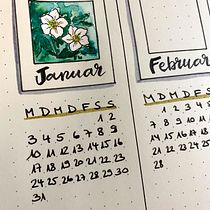 Januar
M D M D F S S
1 2
3 4 5 6 7 8 9
10 11 12 13 14 15 16
17 18 19 20 21 22 23
24 25 26 27 28 29 30
31
Februar
M D M D F S
1 2 3 4 5
7 8 9 10 11 12
14 15 16 17 18 19
21 22 23 24 25 26
28